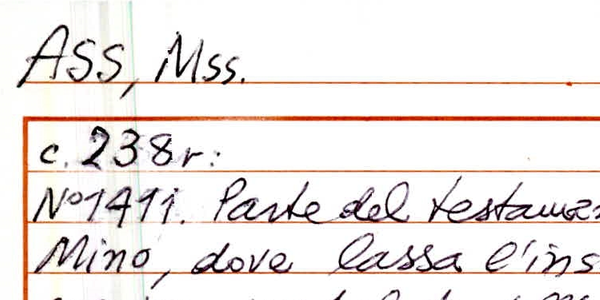 ASS, Mss.
c. 238r:
N°1411. Parte del
Mino, dove lassa l'ins